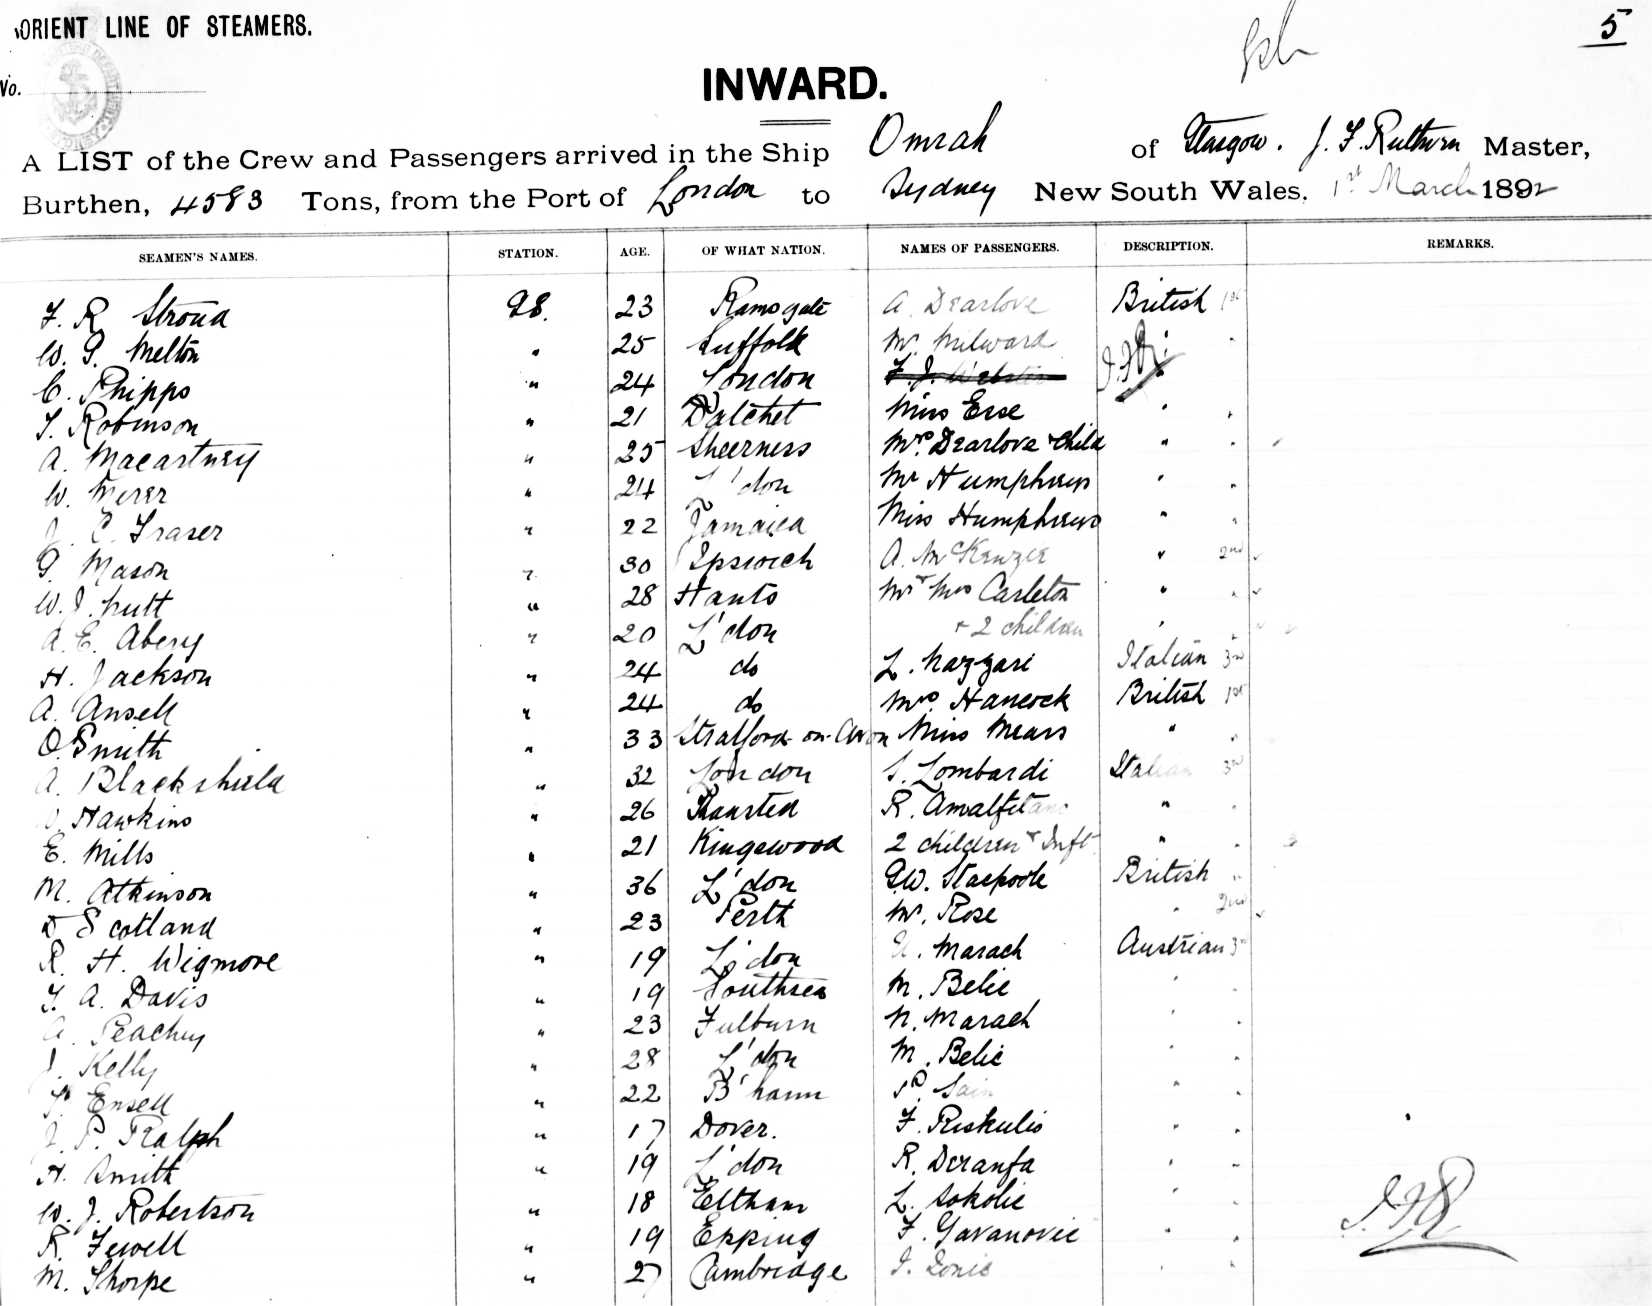 ORIENT LINE OF STEAMERS.
5
No.
INWARD.
A LIST of the Crew and Passengers arrived in the Ship Omrah of Glasgow. J. F. Ruthven Master,
Burthen, 4583 Tons, from the Port of London to Sydney New South Wales, 1st March 1892
SEAMEN'S NAMES. STATION. AGE. OF WHAT NATION. NAMES OF PASSENGERS. DESCRIPTION. REMARKS.
F. R Stroud 23 Ramsgate A Dearlove British 1st
W. G. Melton " 25 Suffolk Mr. Milward "
C. Phipps " 24 London F. J. Webster J.F.R.
T. Robinson " 21 Datchet Miss Esse " "
A. Macartney " 25 Sheerness Mrs. Dearlove + child " "
W. Merer " 24 L'don Mr Humphreys " "
J. C. Fraser " 22 Jamaica Miss Humphreys " "
G. Mason " 30 Ipswich A. McKenzie " 2nd
W. J. Nutt " 28 Hants Mr + Mrs Carleton " "
A. E. Abery " 20 L'don + 2 children " "
H. Jackson " 24 do L. Nazzari Italian 3rd
A. Ansell " 24 do Mrs. Hancock British 1st
O. Smith " 33 Stratford-on-Avon Miss Mears " "
A. Blackshield " 32 London S. Lombardi Italian 3rd
Hawkins " 26 R. Amalfitano " "
E. Mills " 21 Kingswood 2 children + Inft " "
M. Atkinson " 36 L'don G.W. Stacpoole British "
D Scotland " 23 Perth Mr. Rose " 2nd
R. H. Wigmore " 19 L'don Marach Austrian 3rd
T. A. Davis " 19 Southsea M. Belic " "
A. Peachey " 23 Fulburn N. Marach " "
J. Kelly " 28 L'don M. Belic " "
Ensell " 22 B'ham P. Sain " "
J. P. Ralph " 17 Dover. F. Riskulis " "
H. Smith " 19 L'don R. Deranfa " "
W. J. Robertson " 18 Eltham L. Sokolic " "
R. Fewell " 19 Epping F. Gavanovic " "
M. Thorpe " 27 Cambridge J. Zonic " "
J.F.R.